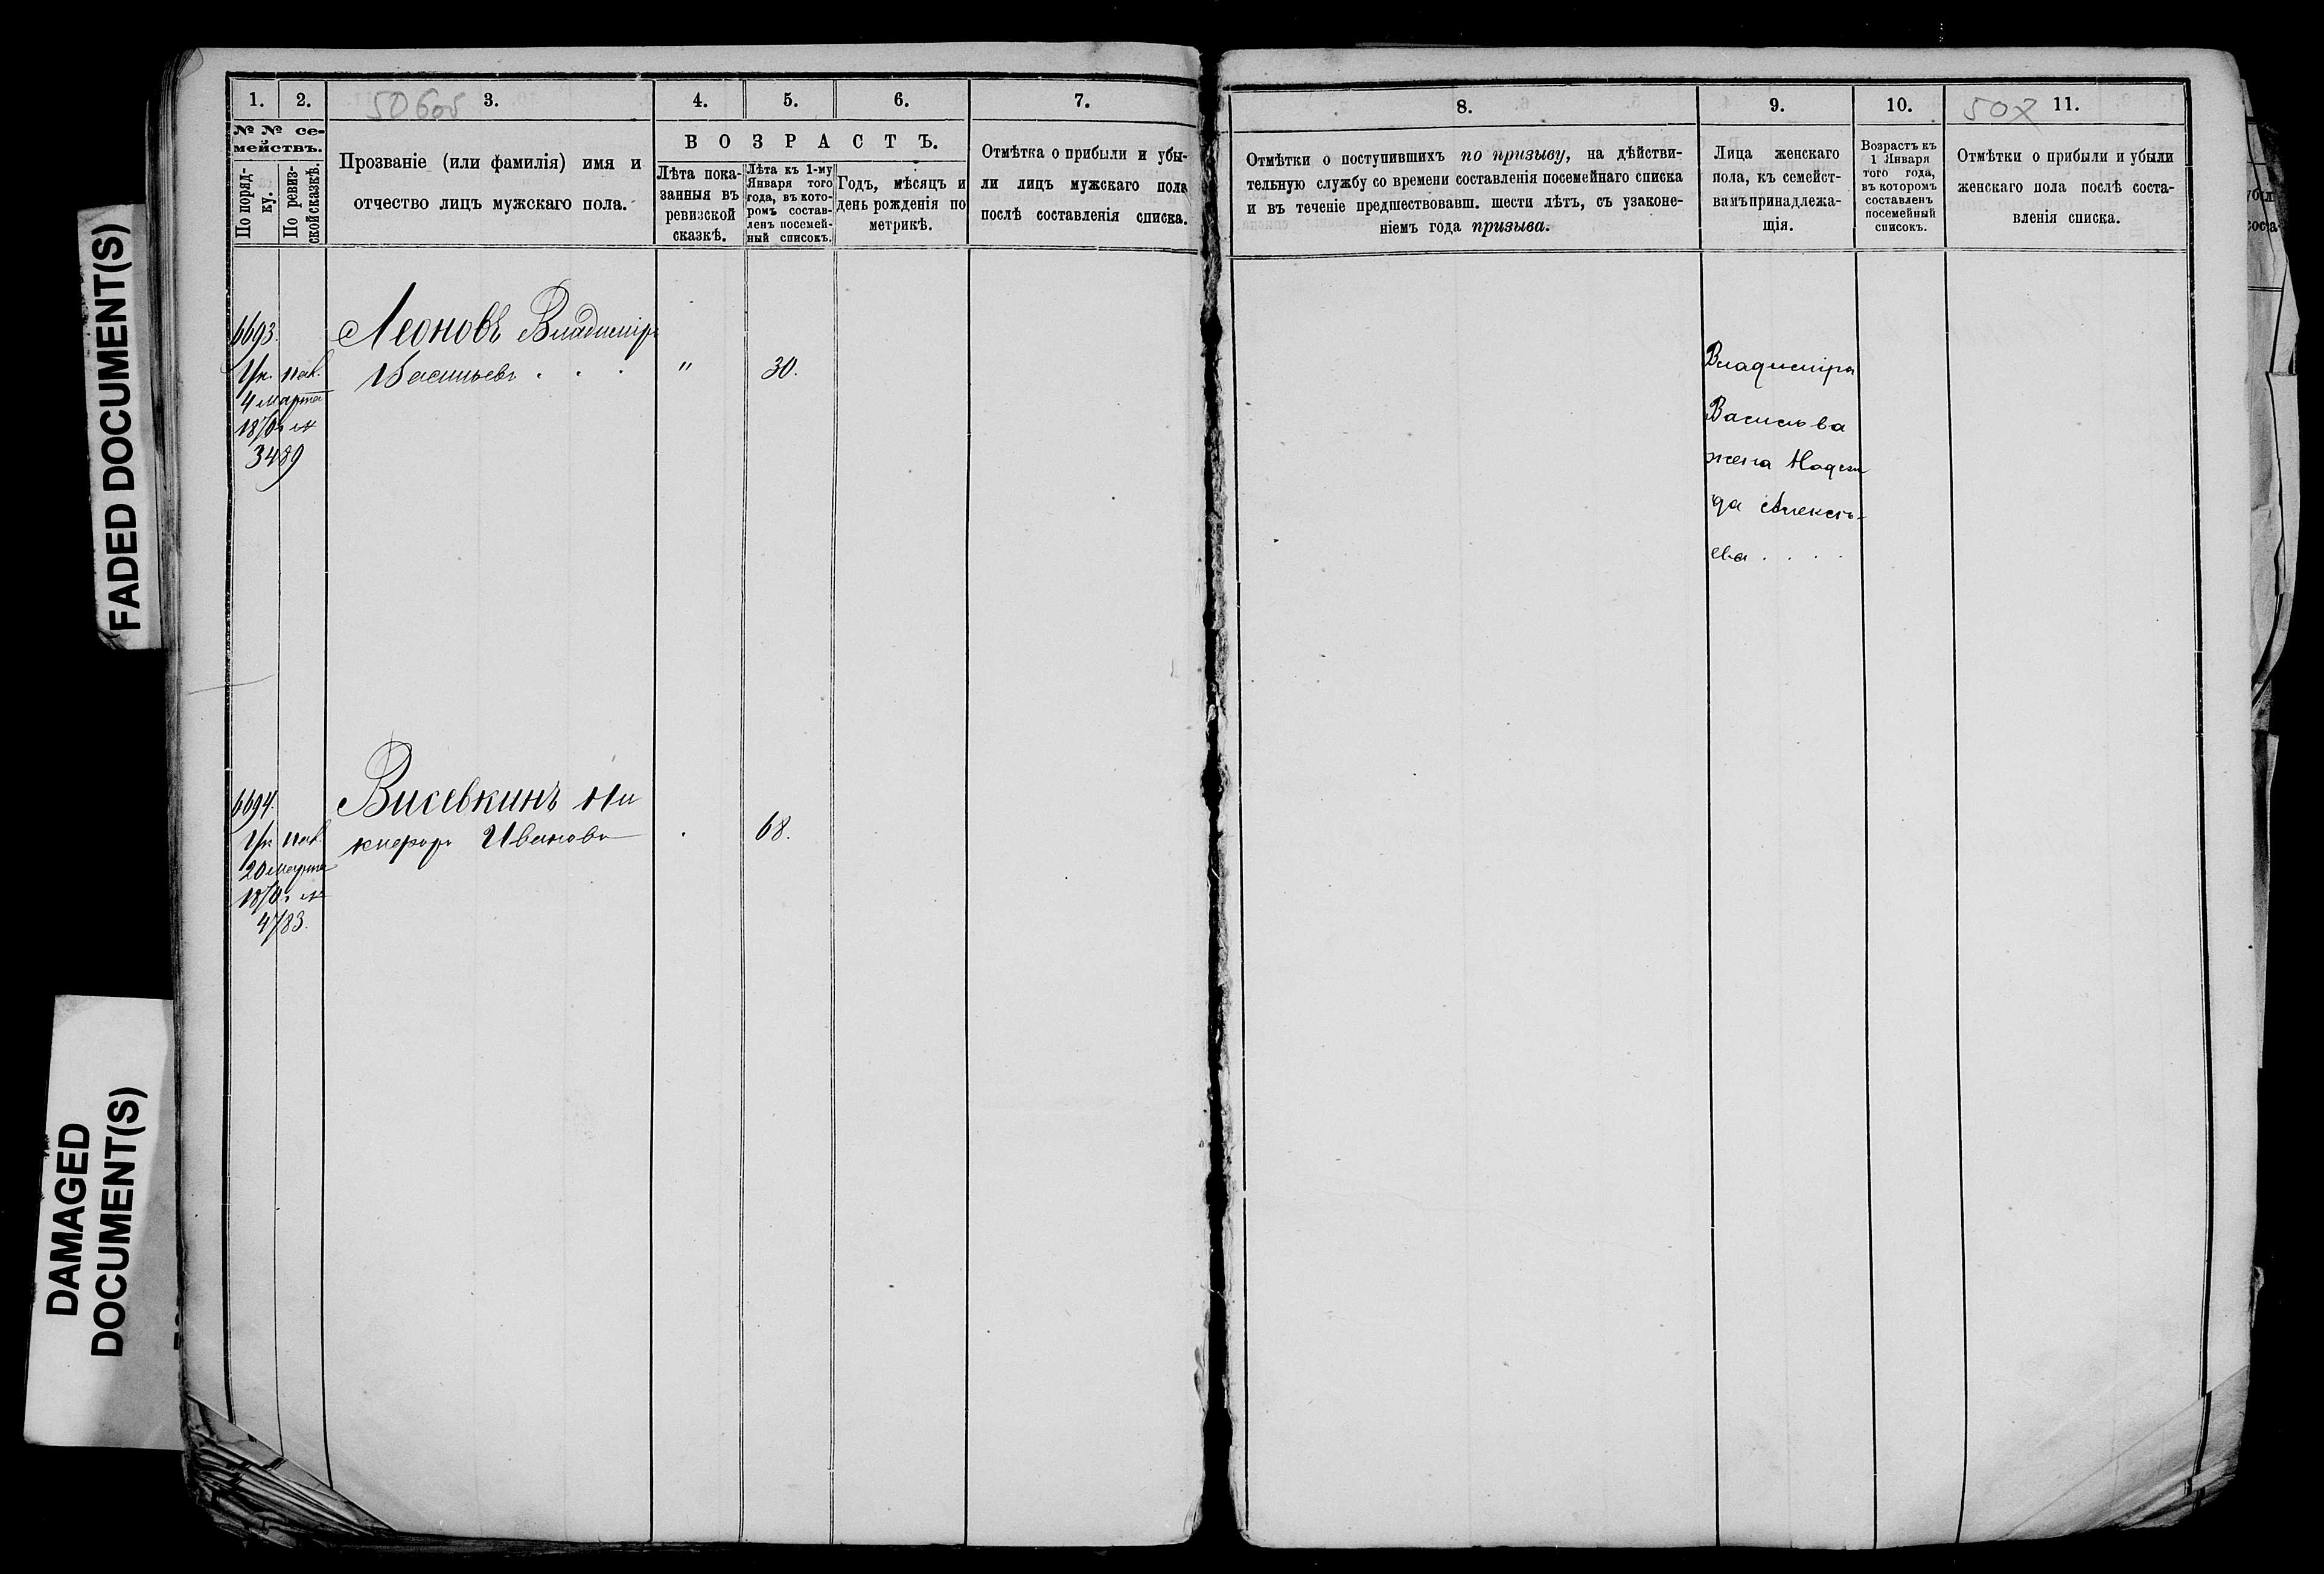 FADED DOCUMENT(S)
DAMAGED
DOCUMENT(S)
1.
2.
50 об
3.
4.
5.
6.
7.
№ № се-
мействъ.
По поряд-
ку.
По ревиз-
ской сказкѣ.
Прозваніе (или фамилія) имя и
отчество лицъ мужскаго пола.
ВОЗРАСТЪ.
Лѣта пока-
занныя въ
ревизской
сказкѣ.
Лѣта къ 1-му
Января того
года, въ кото-
ромъ состав-
ленъ посемей-
ный списокъ.
Годъ, мѣсяцъ и
день рожденія по
метрикѣ.
Отмѣтка о прибыли и убы-
ли лицъ мужскаго пола
послѣ составленія списка.
6693.
Леоновъ Владиміръ
Васильевъ . . .
" 30.
4 марта
3489
6694.
Висевкинъ Ни
кифоръ Ивановъ
68.
20 марта
4783.
8.
9.
10.
11.
Отмѣтки о поступившихъ по призыву, на дѣйстви-
тельную службу со времени составленія посемейнаго списка
и въ теченіе предшествовавш. шести лѣтъ, съ узаконе-
ніемъ года призыва.
Лица женскаго
пола, къ семейст-
вамъ принадлежа-
щія.
Возрастъ къ
1 Января
того года,
въ которомъ
составленъ
посемейный
списокъ.
Отмѣтки о прибыли и убыли
женскаго пола послѣ соста-
вленія списка.
Владиміра
Васильева
жена Надеж
да Алексѣ-
ева . . . .